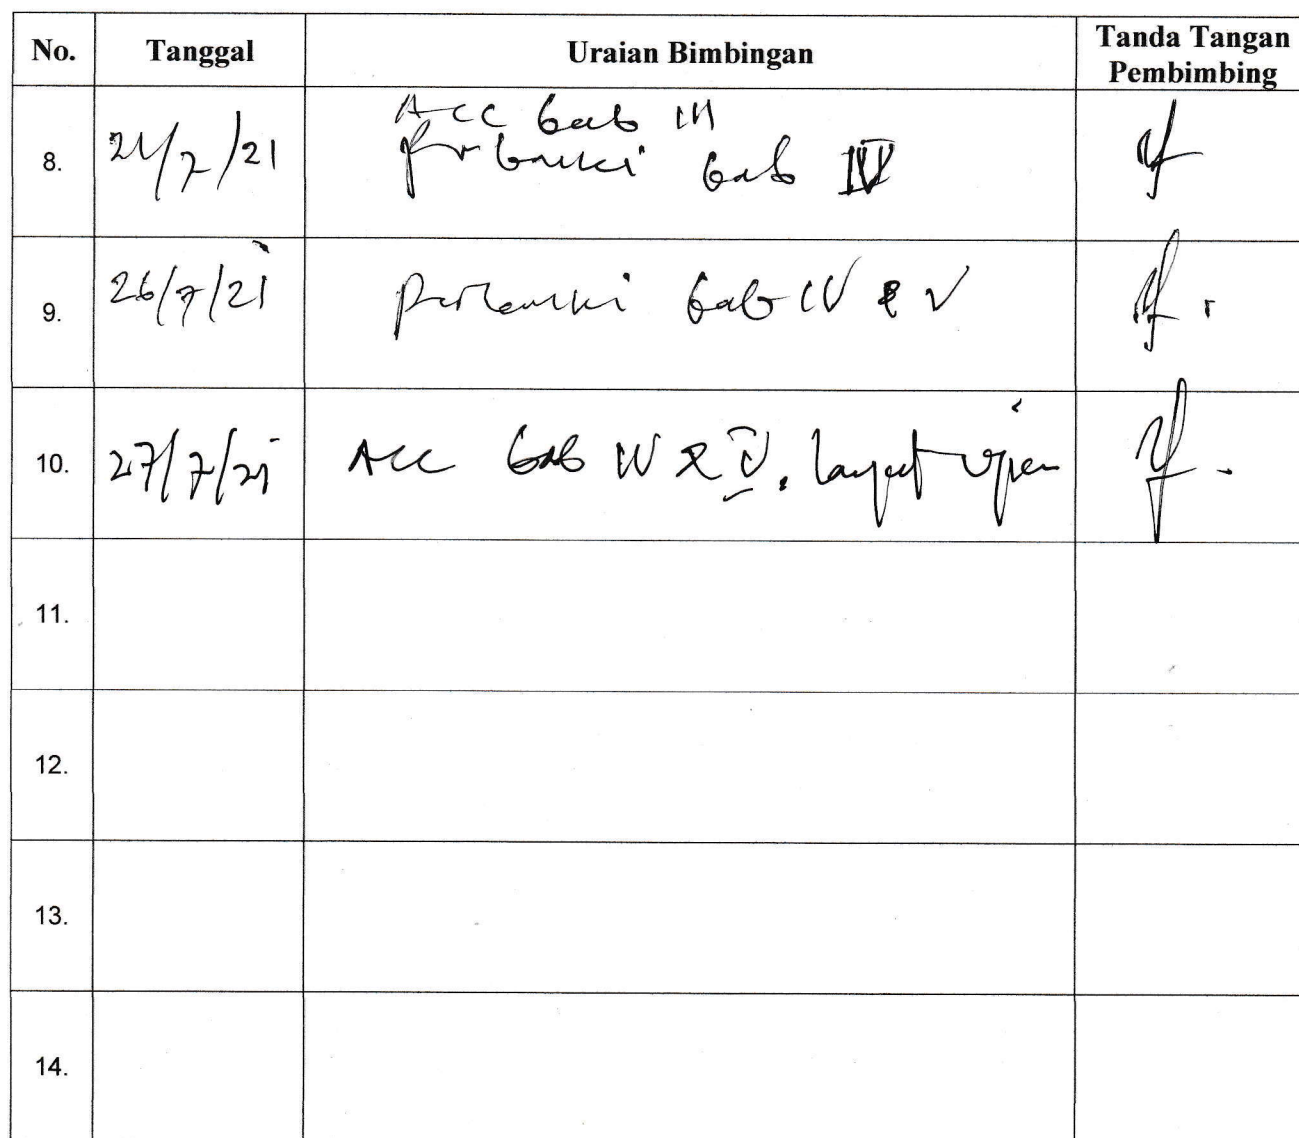 No. Tanggal Uraian Bimbingan Tanda Tangan Pembimbing
8. /7/21 ACC bab III
Perbaiki bab IV
9. 26/7/21 Perbaiki bab IV & V
10. 27/7/21 ACC bab IV & V. lanjut ujian
11.
12.
13.
14.